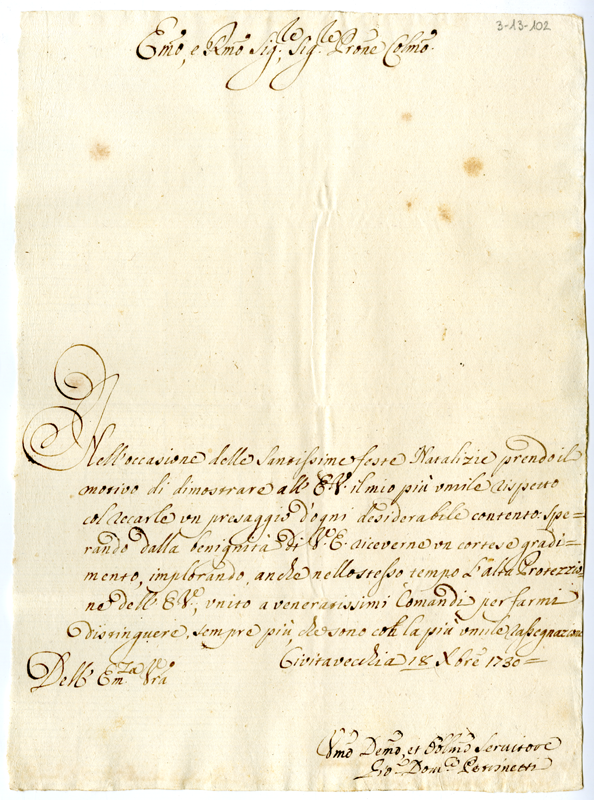 3-13-102
Emo, e Rmo Sig.le, Sig.le Prone Colmo.
Nell'occasione delle Santissime feste Natalizie prendo il
motivo di dimostrare all' E.V. il mio più umile rispetto
col recarle un presaggio d'ogni desiderabile contento: Spe=
rando dalla benignità di V.E. riceverne un cortese gradi=
mento, implorando, anche nello stesso tempo l'alta Protezzio
ne dell' E.V., unito a veneratissimi Comandi per farmi
distinguere, sempre più, che sono con la più umile rassegnazione
Dell' Em.za Vra Civitavecchia 18 Xbre 1730=
Umo Devmo, et Obblmo Servitore
Gio. Dom.co